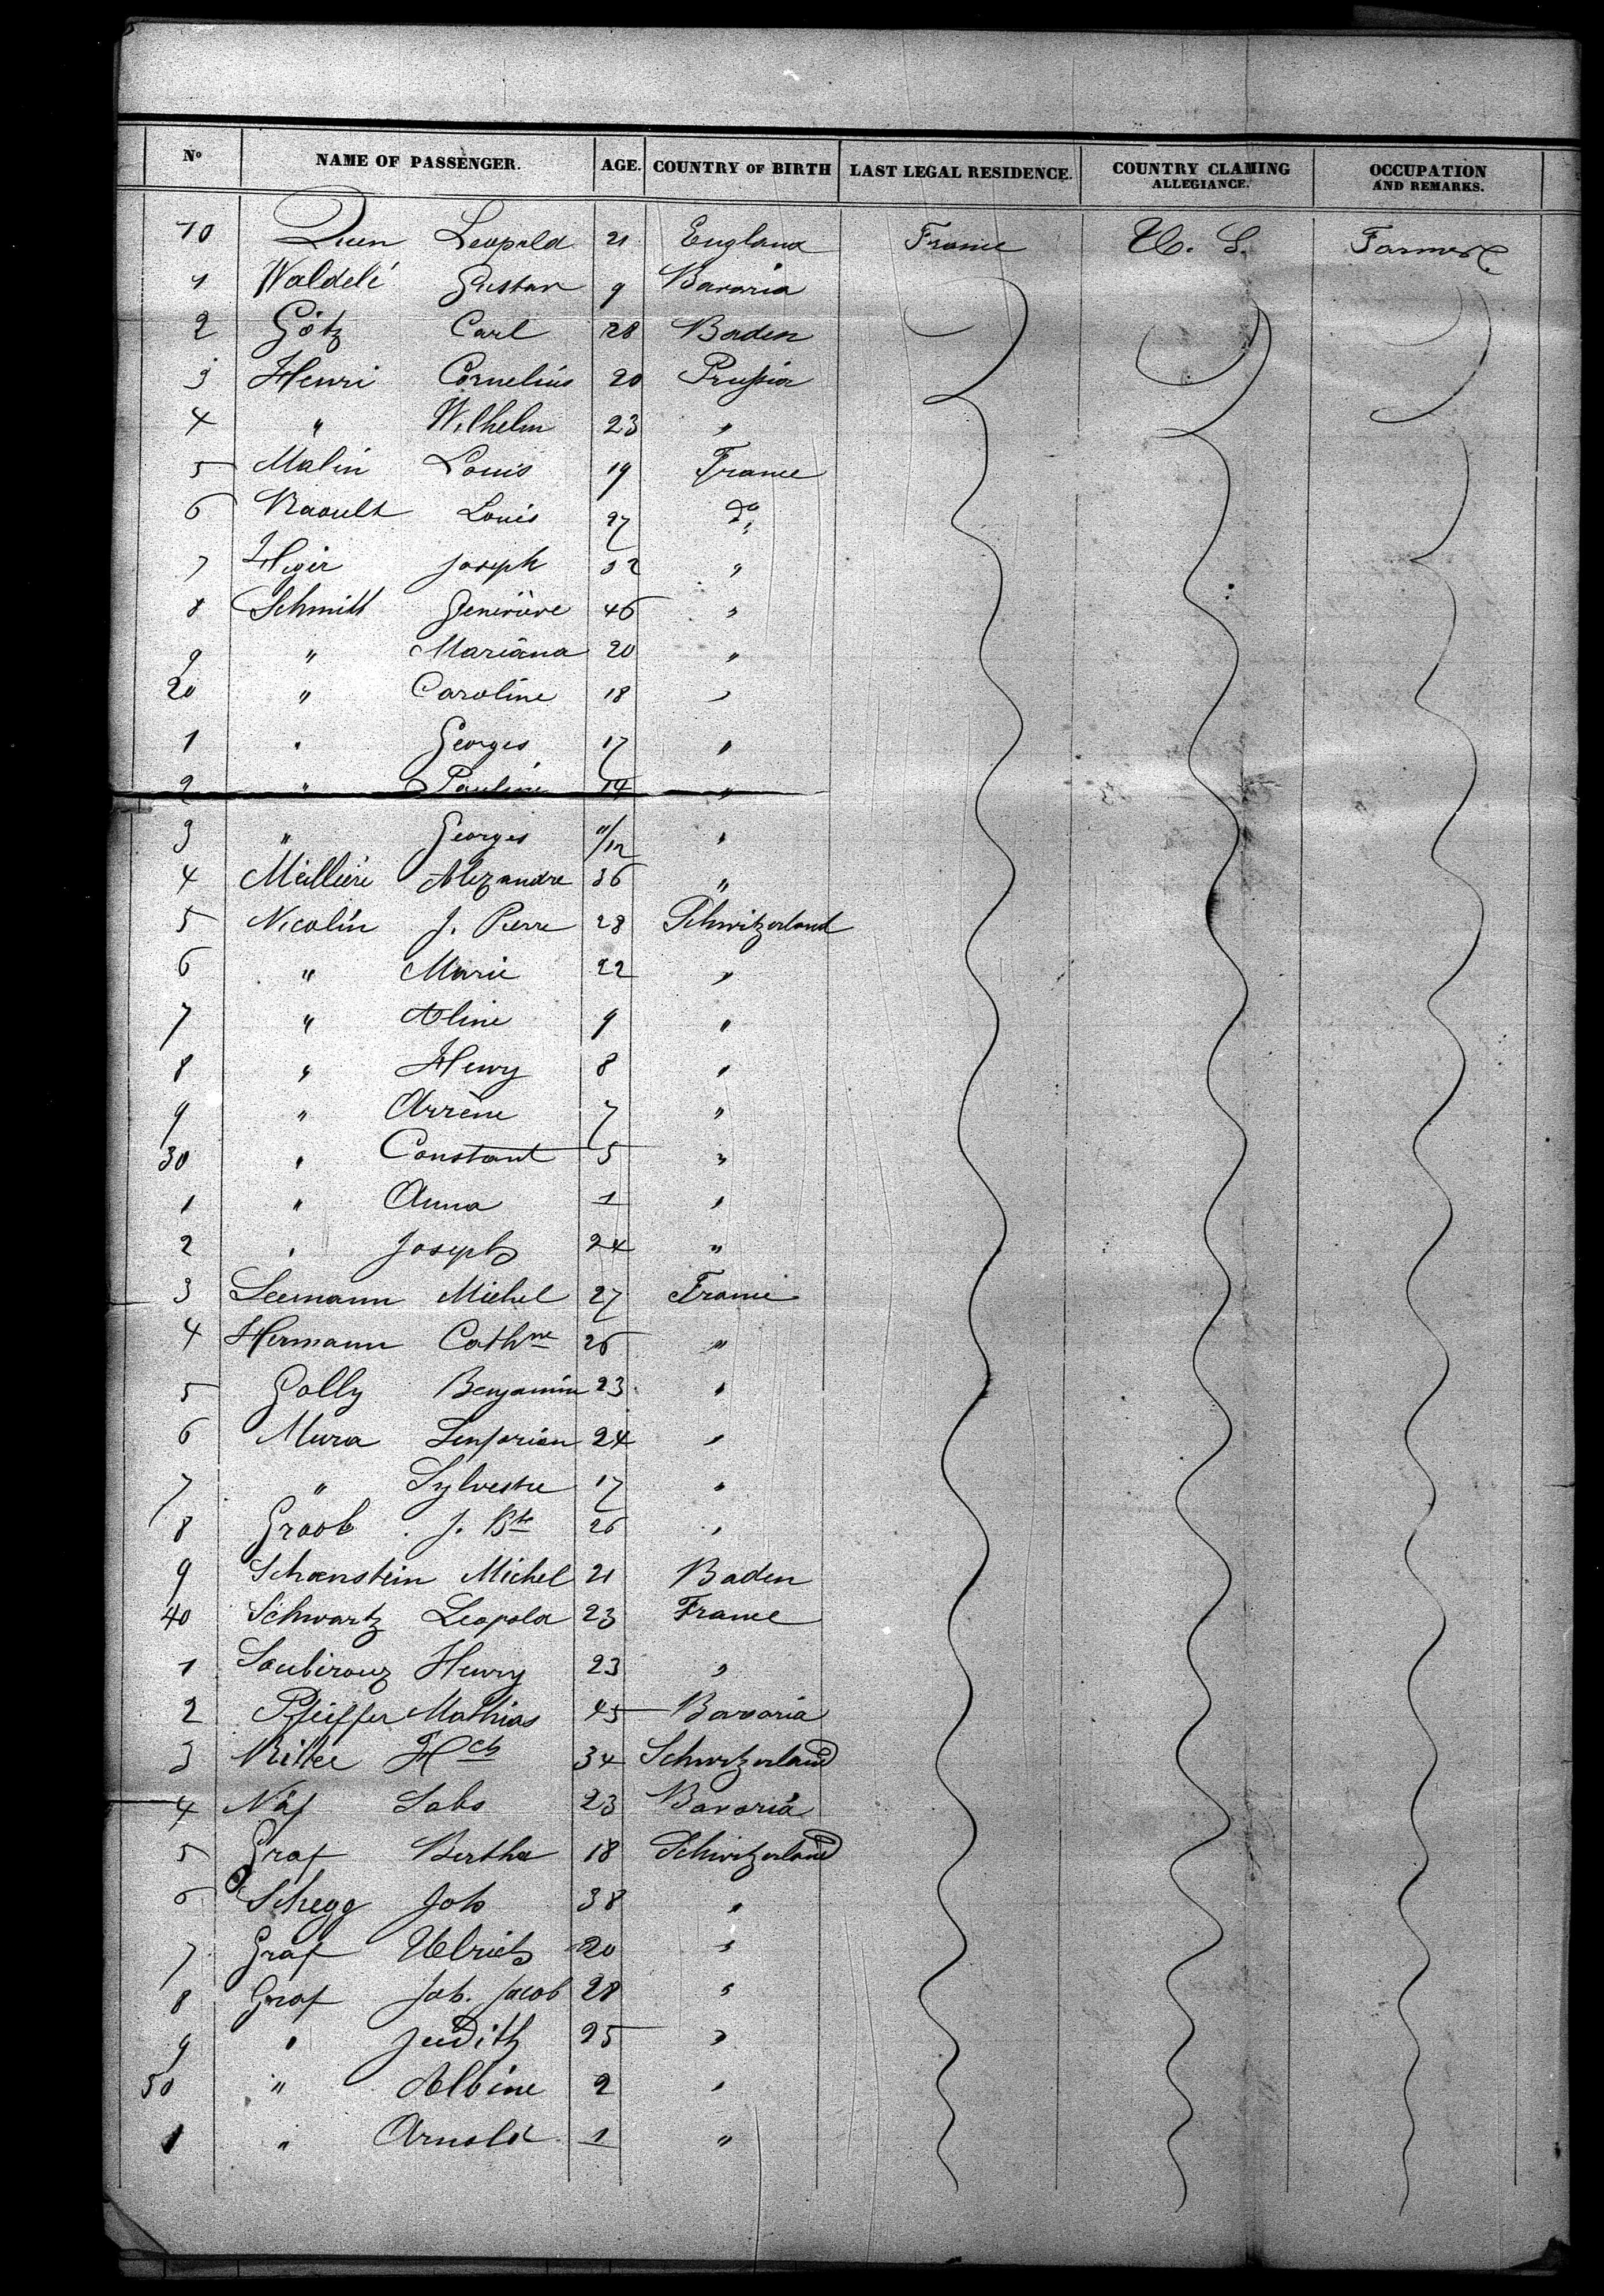 No NAME OF PASSENGER. AGE. COUNTRY OF BIRTH LAST LEGAL RESIDENCE. COUNTRY CLAMING ALLEGIANCE. OCCUPATION AND REMARKS.
10 Queen Leopold 21 England France U. S. Farmer
1 Waldelé Gustav 9 Bavaria
2 Götz Carl 28 Baden
3 Henri Cornelius 20 Prussia
4 " Wilhelm 23 "
5 Malin Louis 19 France
6 Raoult Louis 27 do
7 Higir Joseph 32 "
8 Schmitt Geneviève 46 "
9 " Mariana 20 "
20 " Caroline 18 "
1 " Georges 17 "
2 " Pauline 14 "
3 " Georges 11/12 "
4 Meillière Alexandre 36 "
5 Nicolin J. Pierre 28 Schwitzerland
6 " Marie 22 "
7 " Aline 9 "
8 " Henry 8 "
9 " Arrène 7 "
30 " Constant 5 "
1 " Anna 1 "
2 " Joseph 24 "
3 Leemann Michel 27 France
4 Hermann Cathne 26 "
5 Golly Benjamin 23 "
6 Mura 24 "
7 " Sylvestre 17 "
8 Graob J. Bte 26 "
9 Schoenstein Michel 21 Baden
40 Schwartz Leopold 23 France
1 Soubiroux Henry 23 "
2 Pfeiffer Mathias 45 Bavaria
3 Ritter Hch 34 Schwitzerland
4 Näf 23 Bavaria
5 Graf Bertha 18 Schwitzerland
6 Schegg Joh 38 "
7 Graf Ulrich 20 "
8 Graf Joh. Jacob 28 "
9 " Judith 25 "
50 " Albine 2 "
1 " Arnold 1 "